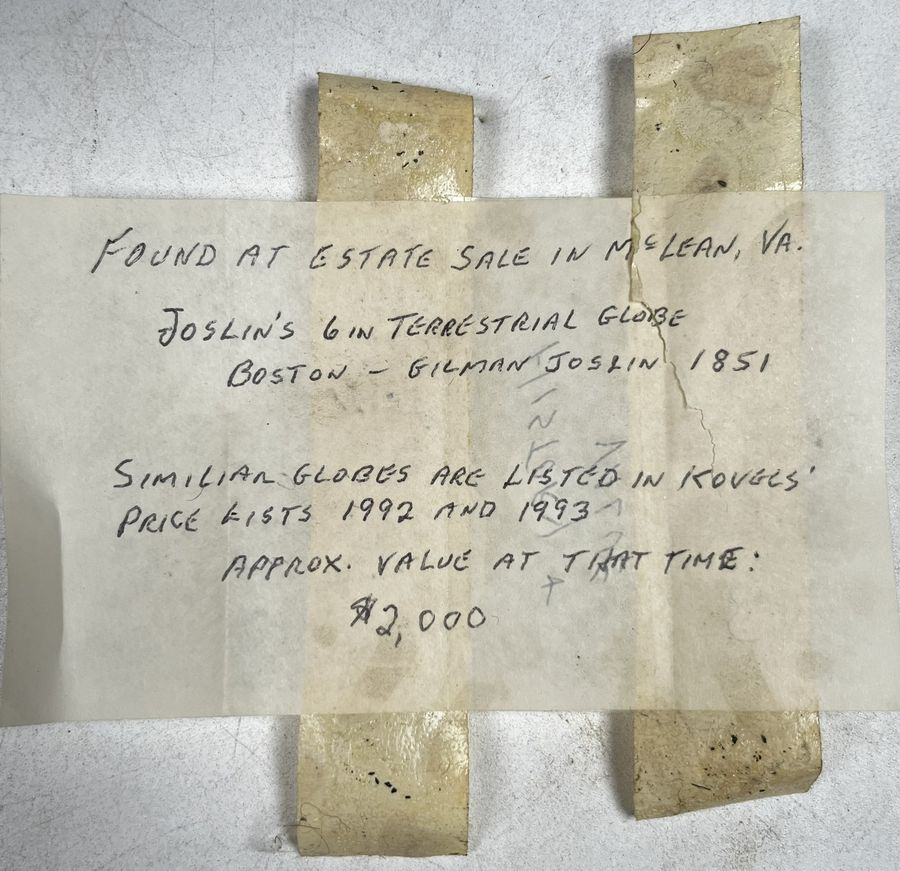 FOUND AT ESTATE SALE IN McLEAN, VA.
JOSLIN'S 6 IN TERRESTRIAL GLOBE
BOSTON - GILMAN JOSLIN 1851
SIMILIAR GLOBES ARE LISTED IN KOVELS'
PRICE LISTS 1992 AND 1993
APPROX. VALUE AT THAT TIME:
$2,000